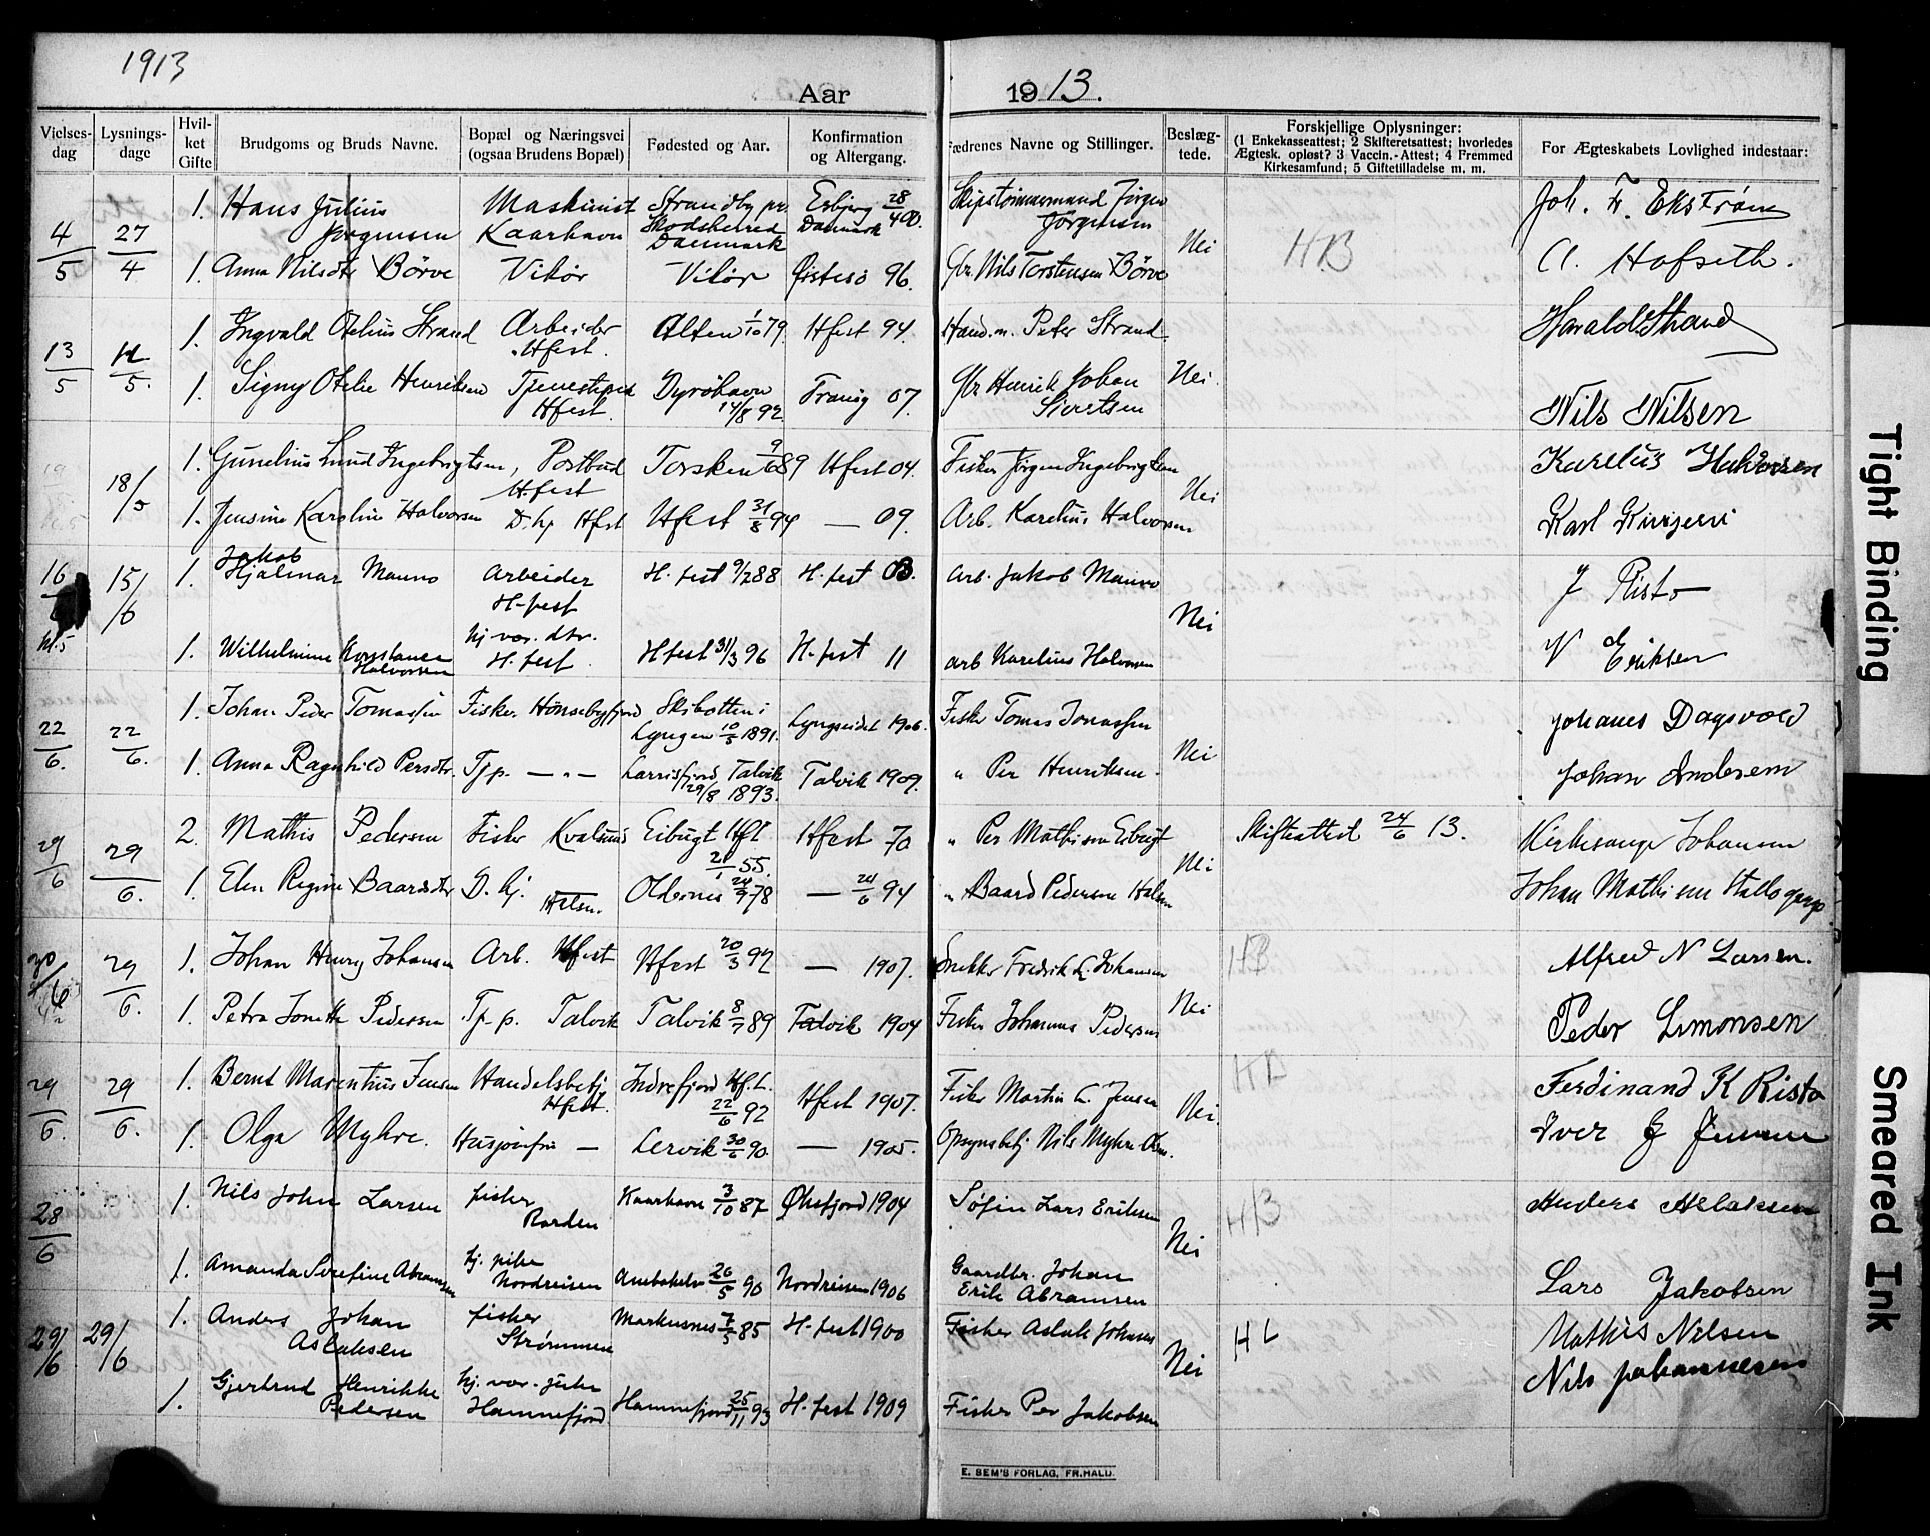 1913
Aar 1913.
Vielses-dag
Lysnings-dage
Hvil-ket Gifte
Brudgoms og Bruds Navne.
Bopæl og Næringsvei (ogsaa Brudens Bopæl)
Fødested og Aar.
Konfirmation og Altergang.
Fædrenes Navne og Stillinger.
Beslæg-tede.
Forskjellige Oplysninger:
(1 Enkekasseattest; 2 Skifteretsattest; hvorledes
Ægtesk. opløst? 3 Vaccin.-Attest; 4 Fremmed
Kirkesamfund; 5 Giftetilladelse m. m.
For Ægteskabets Lovlighed indestaar:
4/5 27/4 1. Hans Julius Jørgensen Maskinist Kaarhavn Strandby pr. Danmark Esbjerg Danmark 28/4 00. Skipstømmermand Jørgen Jörgensen Nei HB Joh. Fr. Ekstrøm
1. Anna Nilsdtr Börve Vikör Vikör Østesö 96. Gbr. Nils Torstensen Börve A. Hofseth.
13/5 11/5. 1. Ingvald Otelius Strand Arbeider Hfest. Alten 1/10 79. Hfest 94. Hand.m. Peter Strand Nei. Harald Strand
1. Signy Otelie Henriksen Tjenestepia Hfest. Dyröhavn 14/8 92. Tranöy 07. Gbr Henrik Johan Siversen Nils Nilsen
18/5 1. Gunelius Lund Ingebrigtsen, Postbud Hfest Torsken 9/6 89 Hfest 04. Fisker Jørgen Ingebrigtsen Nei Karelius Halvorsen
1. Jensine Karoline Halvorsen D. hj. Hfest Hfest 31/8 94 — 09. Arb. Karelius Halvorsen Karl
16 kl. 5 15/6 1. Jakob Hjalmar Manno Arbeider H-fest H. fest 9/2 88 H. fest 03. Arb. Jakob Manno Nei J Risto
1. Wilhelmine Konstanse Halvorsen hj. vær. dtr. H. fest Hfest 31/3 96 H. fest 11 arb Karelius Halvorsen N Eriksen
22/6. 22/6. 1. Johan Peder Tomassen Fisker. Hönsebyfjord Skibotten i Lyngen 10/5 1891. Lyngseidet 1906. Fisker Tomas Jonassen Nei Johanes Dagsvold
1. Anna Ragnhild Persdtr. Tjp. — " — Larrisfjord, Talvik 29/8 1893. Talvik 1909. " Per Henriksen. Johan Andersen
29/6 29/6. 2. Mathis Pedersen Fisker Kvalsund Eibugt Hft 21/1 55. Hfest 70 " Per Mathisen Eibugt Nei Skifteattest 24/6 13. Kirkesanger Johansen
1. Elen Regine Baardsdtr D. hj. Halsen. Oldernes 24/9 78 — 24/6 94 " Baard Pedersen Halsen Johan Mathisen
30/6 29/6. 1. Johan Henry Johansen Arb. Hfest Hfest 20/3 92 — 1907. Snekker Fredrik L. Johansen Nei HB Alfred N Larsen.
1. Petra Jonette Pedersen Tj. p. Talvik Talvik 8/7 89 Talvik 1904 Fisker Johannes Pedersen Peder Simonsen
29/6. 29/6. 1. Bernt Marentius Jensen Handelsbetj. Hfest. Indrefjord Hf.L. 22/6 92 Hfest 1907. Fisker Martin L. Jensen Nei. HB Ferdinand K Risto
1. Olga Myhre. Husjomfru — Lervik 30/6 90. — 1905. Opsynsbetj Nils Myhre Iver J Jensen
28/6 1. Nils John Larsen fisker Kaarhavn 3/10 87 Øksfjord 1904 Søfin Lars Eriksen Nei HB Anders Aslaksen
1. Amanda Serefine Abramsen hj. pike Nordreisen 26/5 90 Nordreisen 1906 Gaardbr. Johan Erik Abramsen Lars Jakobsen
29/6 29/6 1. Anders Johan Aslaksen fisker Strømmen Markusnes 7/5 85 H. fest 1900 Fisker Aslak Johnsen Nei HL Mathis Nilsen
1. Gjertrud Henrikke Pedersen hj. vær. pike Hamnefjord Hamnefjord 25/11 93 H. fest 1909 Fisker Per Jakobsen Nils Johannesen
E. SEM'S FORLAG, FR.HALD.
Tight Binding
Smeared Ink